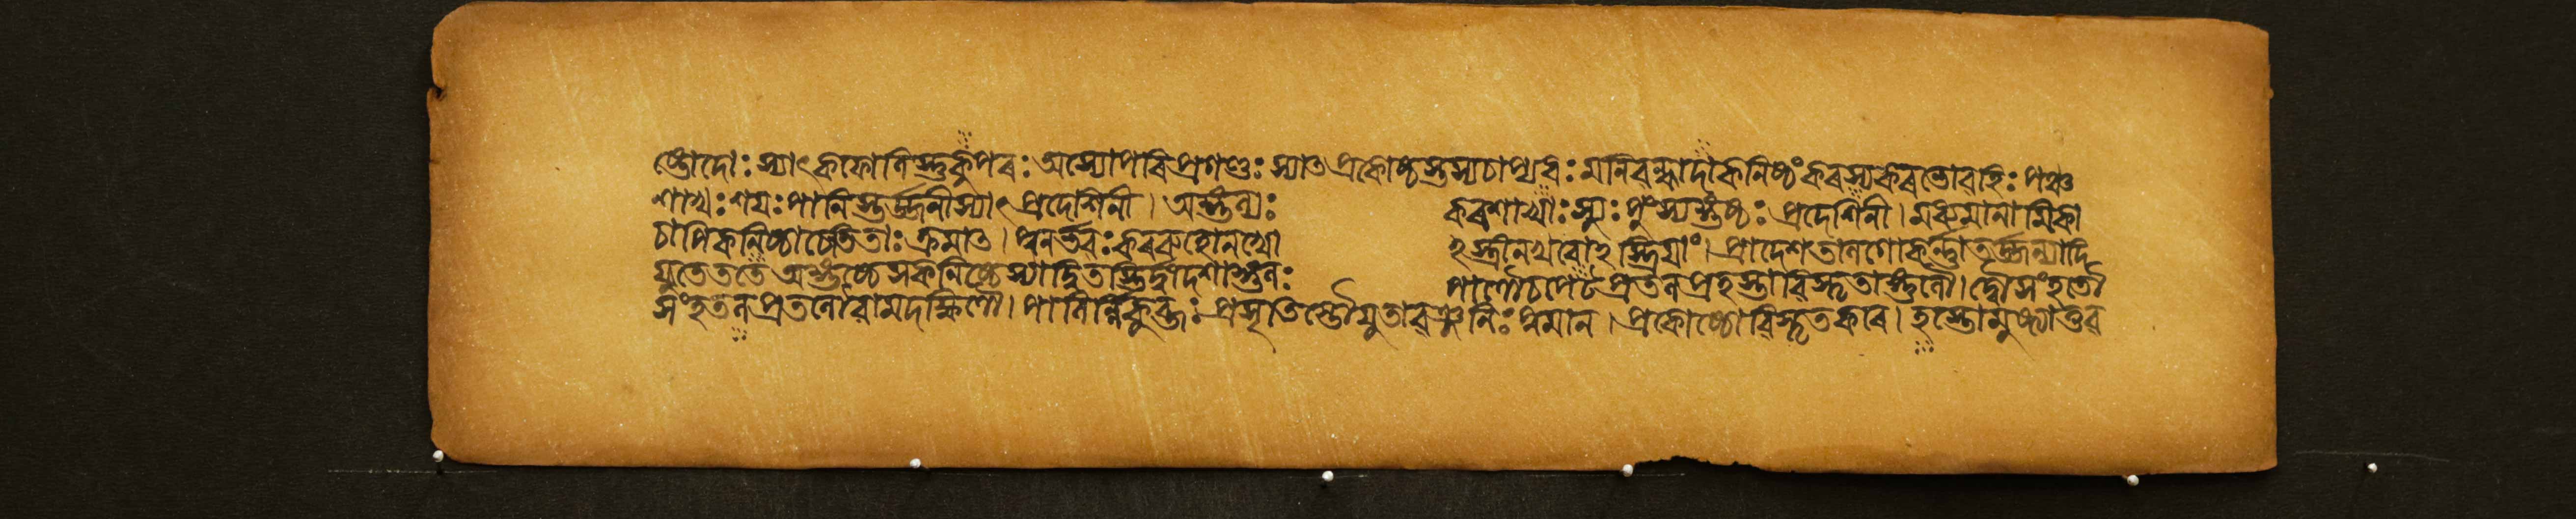 ষ্টোদোঃস্যাৎকফোনিস্তুকুৰ্পৰঃঅস্যোপৰিপ্ৰগণ্ডঃস্যাতপ্ৰকোষ্ঠস্তস্যচাপ্যধঃমনিবন্ধাদাকনিষ্ঠংকৰস্যকৰভোবহিঃপঞ্চ
শাখঃশয়ঃপানিস্তৰ্জ্জনীস্যাৎপ্ৰদেশিনী।অঙ্গুল্যঃ কৰশাখাঃস্যুঃপুংস্যঙ্গুষ্ঠঃপ্ৰদেশিনী।মধ্যমানামিকা
চাপিকনিষ্ঠাচেতিতাঃক্ৰমাত।পুনৰ্ভবঃকৰৰুহোনখো হস্ত্ৰীনখৰোহস্ত্ৰিয়াং।প্ৰাদেশতালগোকৰ্ন্নাতৰ্জ্জন্যাদি
যুতেততেঅঙ্গুষ্ঠেসকনিষ্ঠেস্যাদ্বিতস্তিৰ্দ্বাদশাঙ্গুলঃ পাণৌচপেটপ্ৰতলপ্ৰহস্তাবিস্তৃতাঙ্গুলৌ।দ্বৌসংহতৌ
সংহতলপ্ৰতলৌবামদক্ষিণৌ।পানিৰ্নিকুব্জঃপ্ৰসৃতিস্তৌযুতাবঞ্জলিঃপুমান।প্ৰকোষ্ঠেবিস্তৃতকৰে।হস্তোমুষ্ট্যাতুব